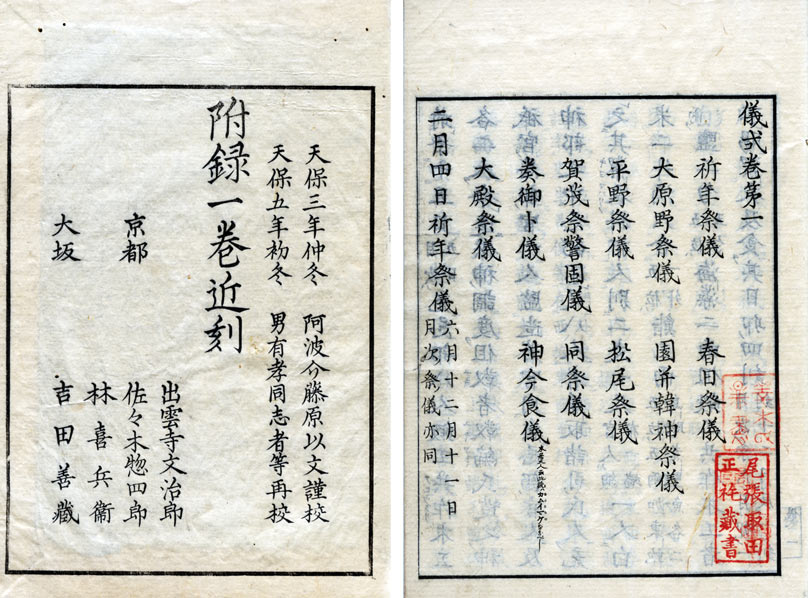 儀式卷第一
祈年祭儀 春日祭儀
大原野祭儀 園并韓神祭儀
平野祭儀 松尾祭儀
賀茂祭警固儀 同祭儀
奏御卜儀 神今食儀
大殿祭儀
二月四日祈年祭儀 六月十二月十一日
月次祭儀亦同
尾張取田
正祥藏書
天保三年仲冬 阿波介藤原以文謹校
天保五年初冬 男有孝同志者等再校
附録一卷近刻
出雲寺文治郎
京都 佐々木惣四郎
林喜兵衞
大坂 吉田善藏